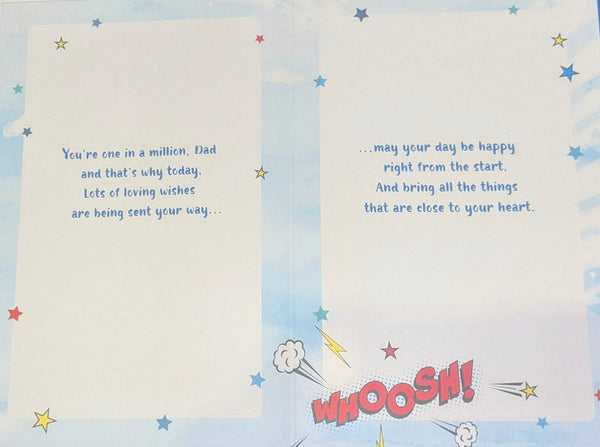 You're one in a million, Dad
and that's why today,
Lots of loving wishes
are being sent your way...
...may your day be happy
right from the start,
And bring all the things
that are close to your heart.
WHOOSH!